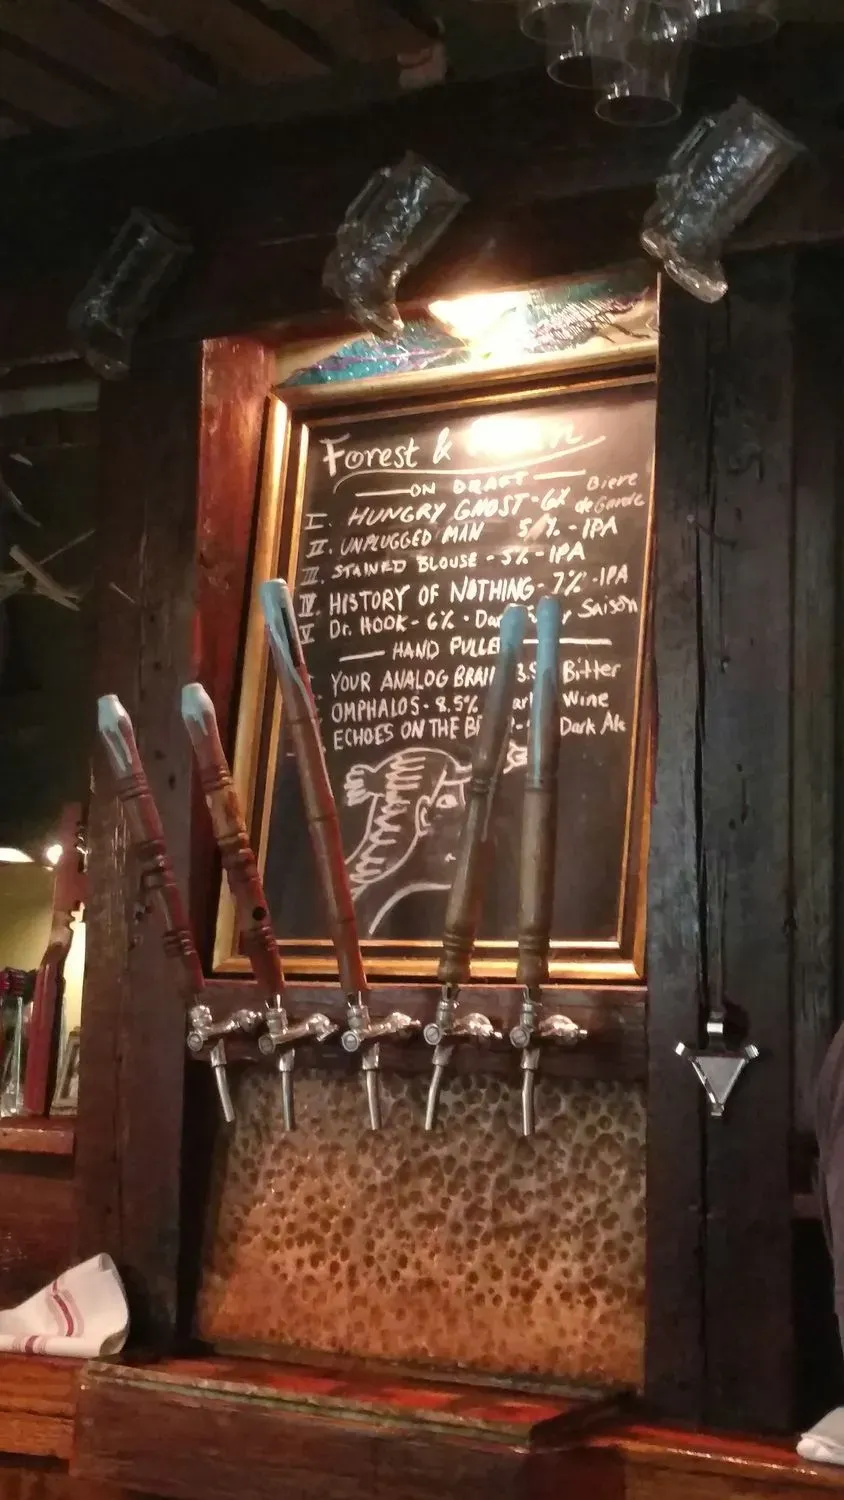 Forest &
ON DRAFT
I. HUNGRY GHOST - 6% Biere de Garde
II. UNPLUGGED MAN 5% - IPA
III. STAINED BLOUSE - 5% - IPA
IV. HISTORY OF NOTHING - 7% - IPA
V Dr. HOOK - 6% - Saison
HAND PULLE
YOUR ANALOG BRAI 3.5 Bitter
OMPHALOS - 8.5% Wine
ECHOES ON THE Dark Ale